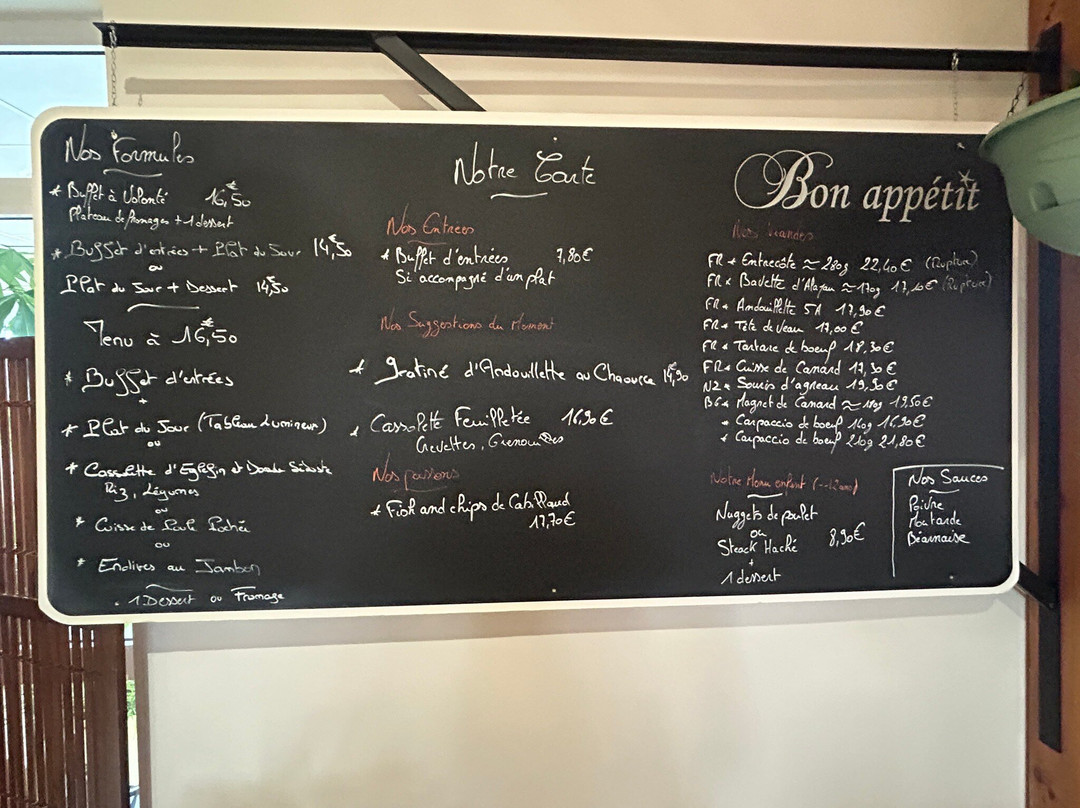 Nos Formules
* Buffet à Volonté 16,€50
Plateau de fromages + 1 dessert
* Buffet d'entrées + Plat du Jour 14,€50
ou
Plat du Jour + Dessert 14,€50
Menu à 16,€50
* Buffet d'entrées
+
* Plat du Jour (Tableau Lumineux)
ou
* Cassolette d'Eglefin et
Riz, Légumes
ou
* Cuisse de Poule Pochée
ou
* Endives au Jambon
. 1 Dessert ou Fromage
Notre Carte
Nos Entrées
* Buffet d'entrées 7,80€
Si accompagné d'un plat
Nos Suggestions du Moment
* Gratiné d'Andouillette au Chaource 14,€90
* Cassolette Feuilletée 16,90€
Crevettes, Grenouilles
Nos poissons
* Fish and chips de Cabillaud
17,70€
Bon appétit
Nos Viandes
FR * Entrecôte ≈ 280g 22,40€ (Rupture)
FR * Bavette d'Aloyau ≈ 170g 17,10€ (Rupture)
FR * Andouillette 5A 17,90€
FR * Tête de Veau 17,00€
FR * Tartare de boeuf 18,30€
FR * Cuisse de Canard 17,30€
NZ * Souris d'agneau 19,30€
BG * Magret de Canard ≈ 180g 19,50€
* Carpaccio de boeuf 160g 16,90€
* Carpaccio de boeuf 210g 21,80€
Notre Menu enfant (--12 ans)
Nuggets de poulet
ou
Steack Haché 8,90€
+
1 dessert
Nos Sauces
Poivre
Moutarde
Béarnaise